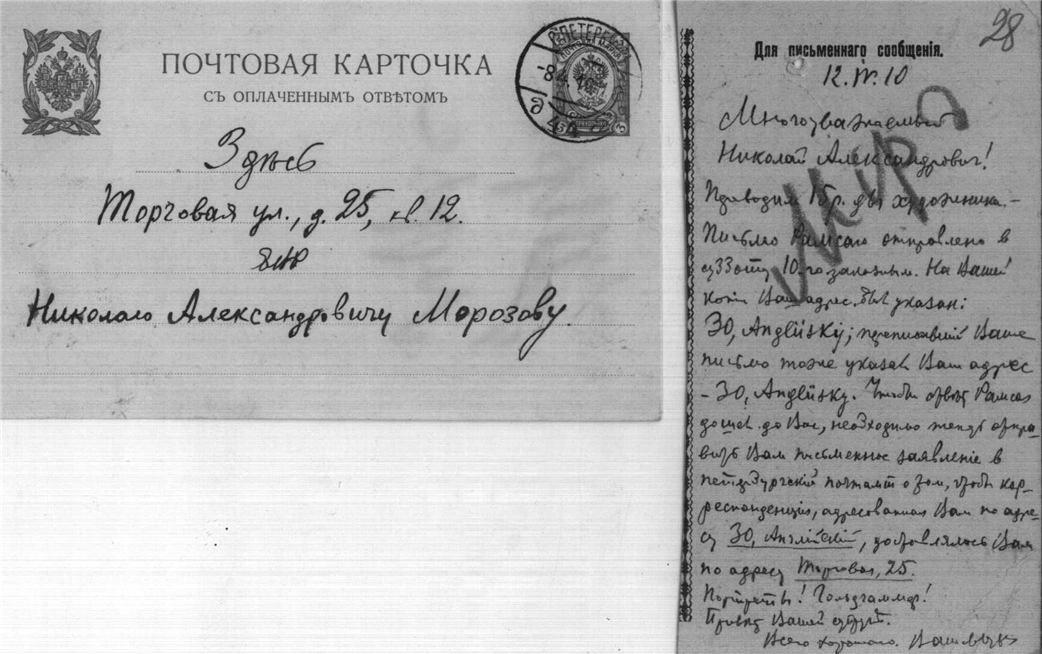 ПОЧТОВАЯ КАРТОЧКА
СЪ ОПЛАЧЕННЫМЪ ОТВѢТОМЪ
Здѣсь
Торговая ул., д. 25, кв. 12.
Николаю Александровичу Морозову.
28
Для письменнаго сообщенія.
12.IV.10
Многоуважаемый
Николай Александрович!
15 р. для художника. –
Письмо Рамсаю отправлено в
субботу 10-го заказным. На Вашей
копии Ваш адрес был указан:
30, Angliisky; Ваше
письмо тоже указал Ваш адрес
– 30, Angliisky. Чтобы ответ Рамсая
дошел до Вас, необходимо
Вам письменное заявленіе в
петербургский почтамт о том, чтобы кор-
респонденция, адресованная Вам по адре-
су 30, Английский, доставлялась Вам
по адресу Торговая, 25.
Портреты! Гольдгаммер!
Привет Вашей супруге.
Всего хорошаго. Ваш